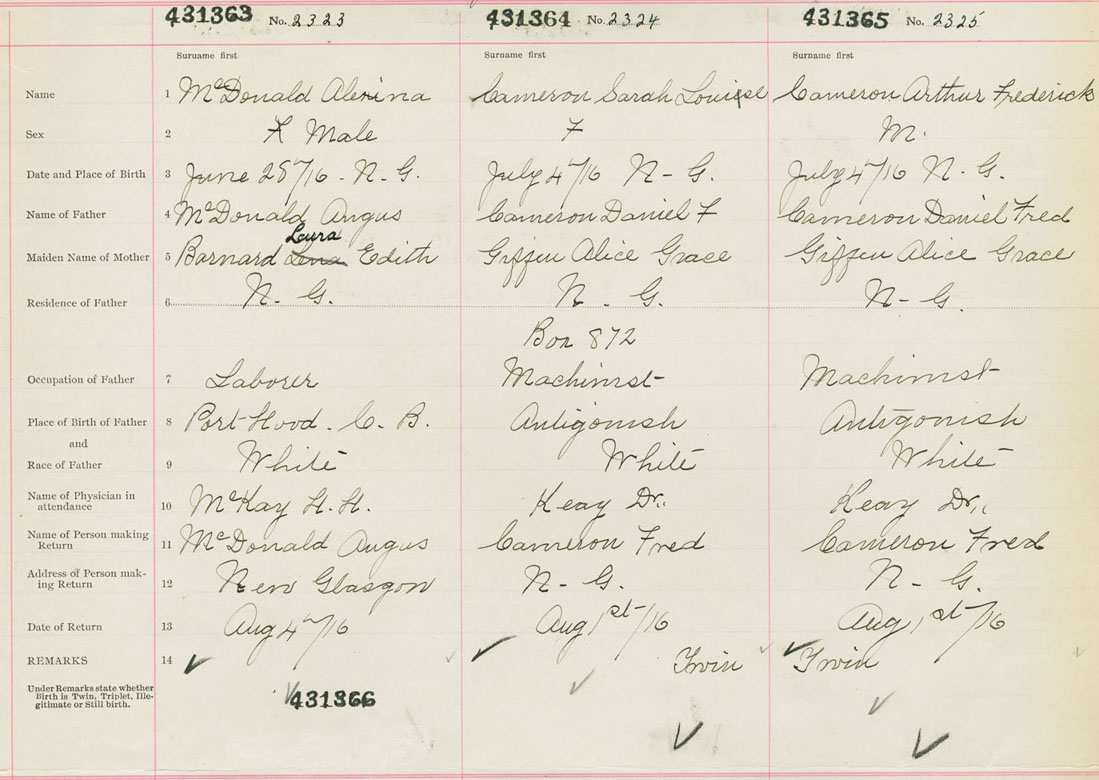 431363 No. 2323
431364 No. 2324
431365 No. 2325
Surname first
Surname first
Surname first
Name 1 McDonald Alexina
Cameron Sarah Louise
Cameron Arthur Frederick
Sex 2 F Male
F
M.
Date and Place of Birth 3 June 28"/16 - N. G.
July 4"/16 N - G.
July 4"/16 N. G.
Name of Father 4 McDonald Angus
Cameron Daniel F
Cameron Daniel Fred
Laura
Maiden Name of Mother 5 Barnard Lena Edith
Giffen Alice Grace
Giffen Alice Grace
Residence of Father 6 N - G.
N. G.
N - G.
Box 872
Occupation of Father 7 Laborer
Machinist
Machinist
Place of Birth of Father 8 Port Hood. C. B.
Antigonish
Antigonish
and
Race of Father 9 White
White
White
Name of Physician in
attendance 10 McKay H. H.
Keay Dr.
Keay Dr.
Name of Person making
Return 11 McDonald Angus
Cameron Fred
Cameron Fred
Address of Person mak-
ing Return 12 New Glasgow
N - G.
N - G.
Date of Return 13 Aug 4"/16
Aug 1st/16
Aug 1st/16
REMARKS 14
Twin
Twin
Under Remarks state whether
Birth is Twin, Triplet, Ille-
gitimate or Still birth.
431366